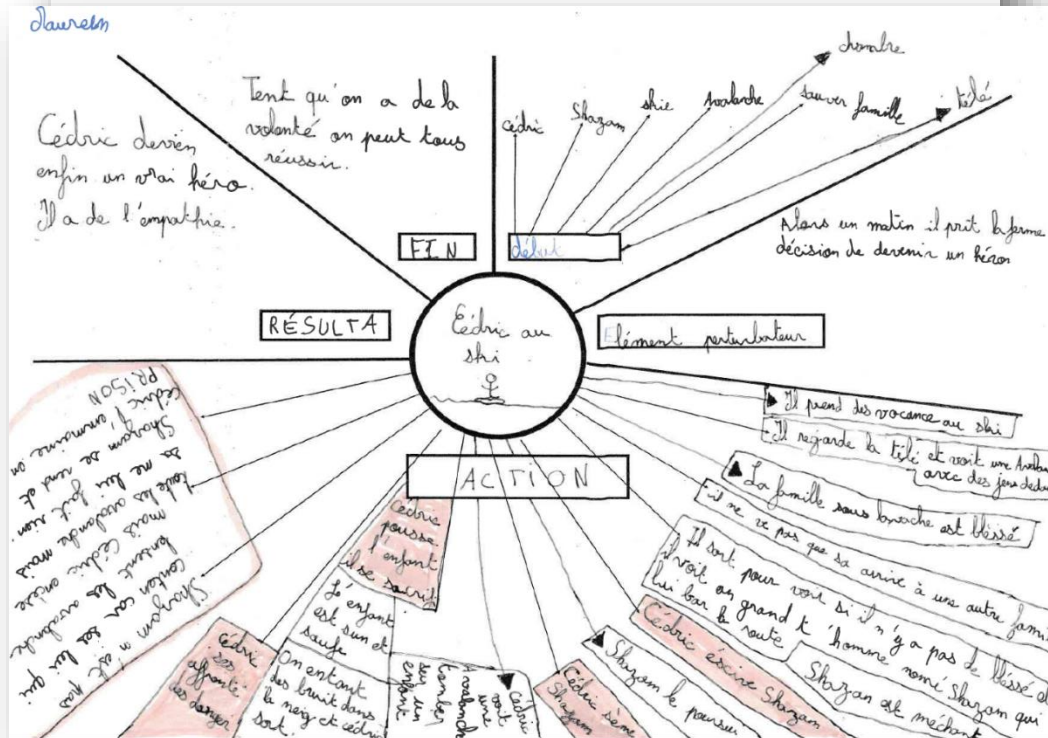 Cédric devien
enfin un vrai héro.
Il a de l'empathie.
Tent qu'on a de la
volonté on peut tous
réussir.
cédric
Shazam
skie
Avalanche
sauver famille
chambre
télé
FIN
début
Alors un matin il prit la ferme
décision de devenir un héron
RÉSULTA
Cédric au
ski
Elément perturbateur
ACTION
Il prend des vacance au ski
Il regarde la télé et voit une Avalan
avec des jens dedan
La famille sous lavache est bléssé
il ne ve pas que sa arrive à une autre famil
Il sort pour voir si il n'y a pas de bléssé et
il voit un grand t'homme nomé Shazam qui
lui bar la route
Shazan est méchant
Cédric éscive Shazam
Shazam le poursui
Cédric sème
Shazam
Cédric
voit
une
Avalanche
tomber
seu un
enfant
Cédric
pousse
l'enfant
il se sacrif
L'enfant
est sun et
saufe
On entant
des bruit dans
la neig et cédric
sort.
Cédric
ses
affronté
des danger
Shazam n'est pas
conten car ses lui qui
lansent les avalanche
mais Cédric ancése
toute les avalanche mais
sa me lui fait rien.
Shazam se rent et
Cédric l'emmaine en
PRISON